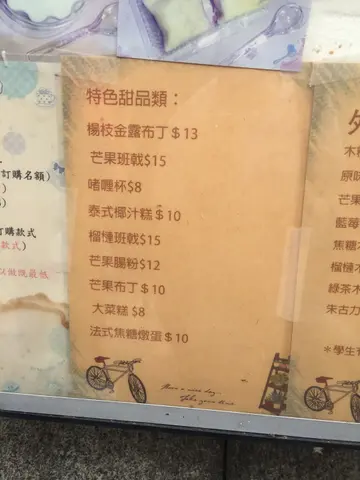 特色甜品類：
楊枝金露布丁＄13
芒果班戟$15
啫喱杯$8
泰式椰汁糕＄10
榴槤班戟$15
芒果腸粉$12
芒果布丁＄10
大菜糕 $8
法式焦糖燉蛋＄10
Have a nice day,
Take your time
訂購名額)
訂購款式
款式)
以做幾最低
木糠
原味
芒果
藍莓
焦糖
榴槤
綠茶木
朱古力
＊學生